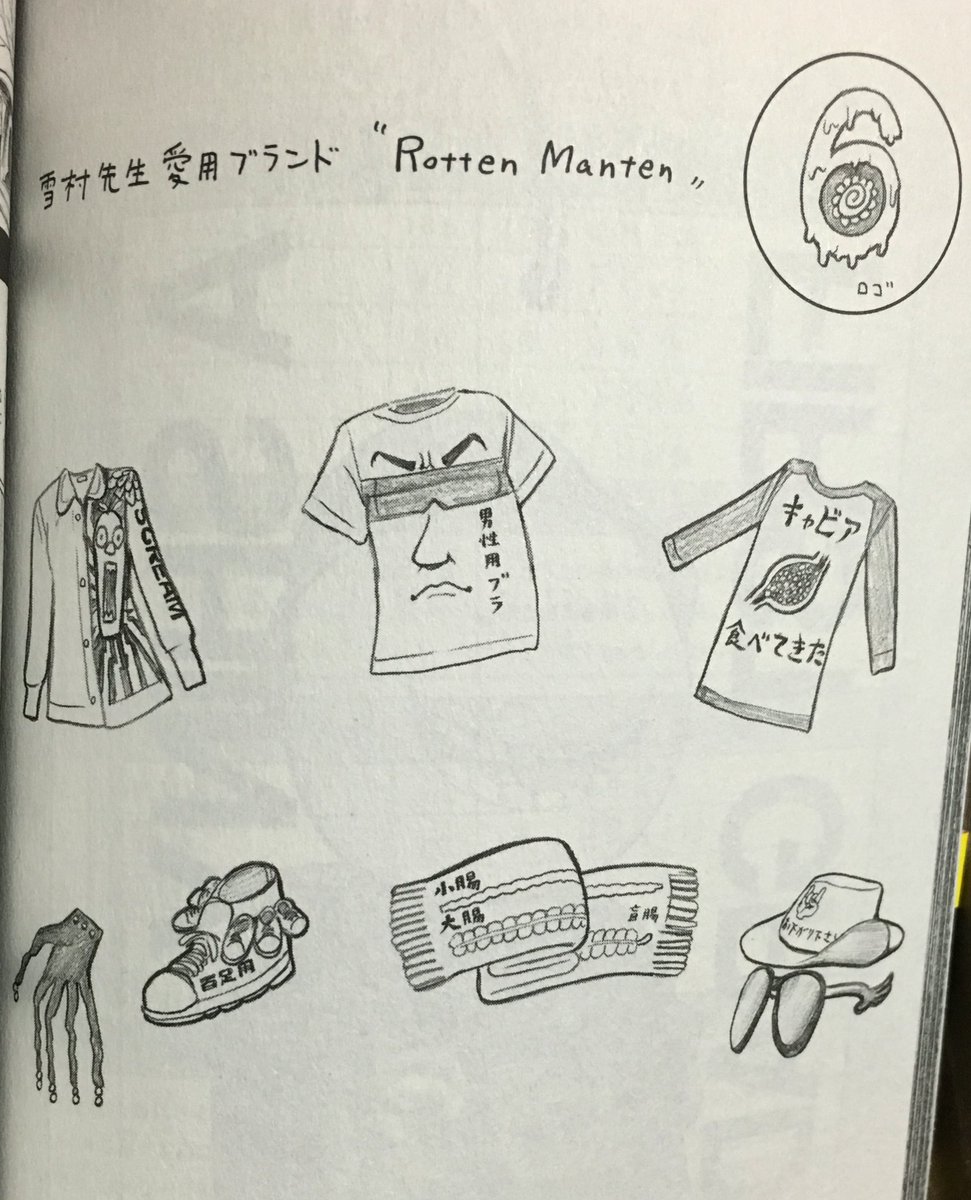 雪村先生愛用ブランド "Rotten Manten"
ロゴ
SCREAM
男性用ブラ
キャビア
食べてきた
百足用
小腸
大腸
盲腸
お下がり下さい